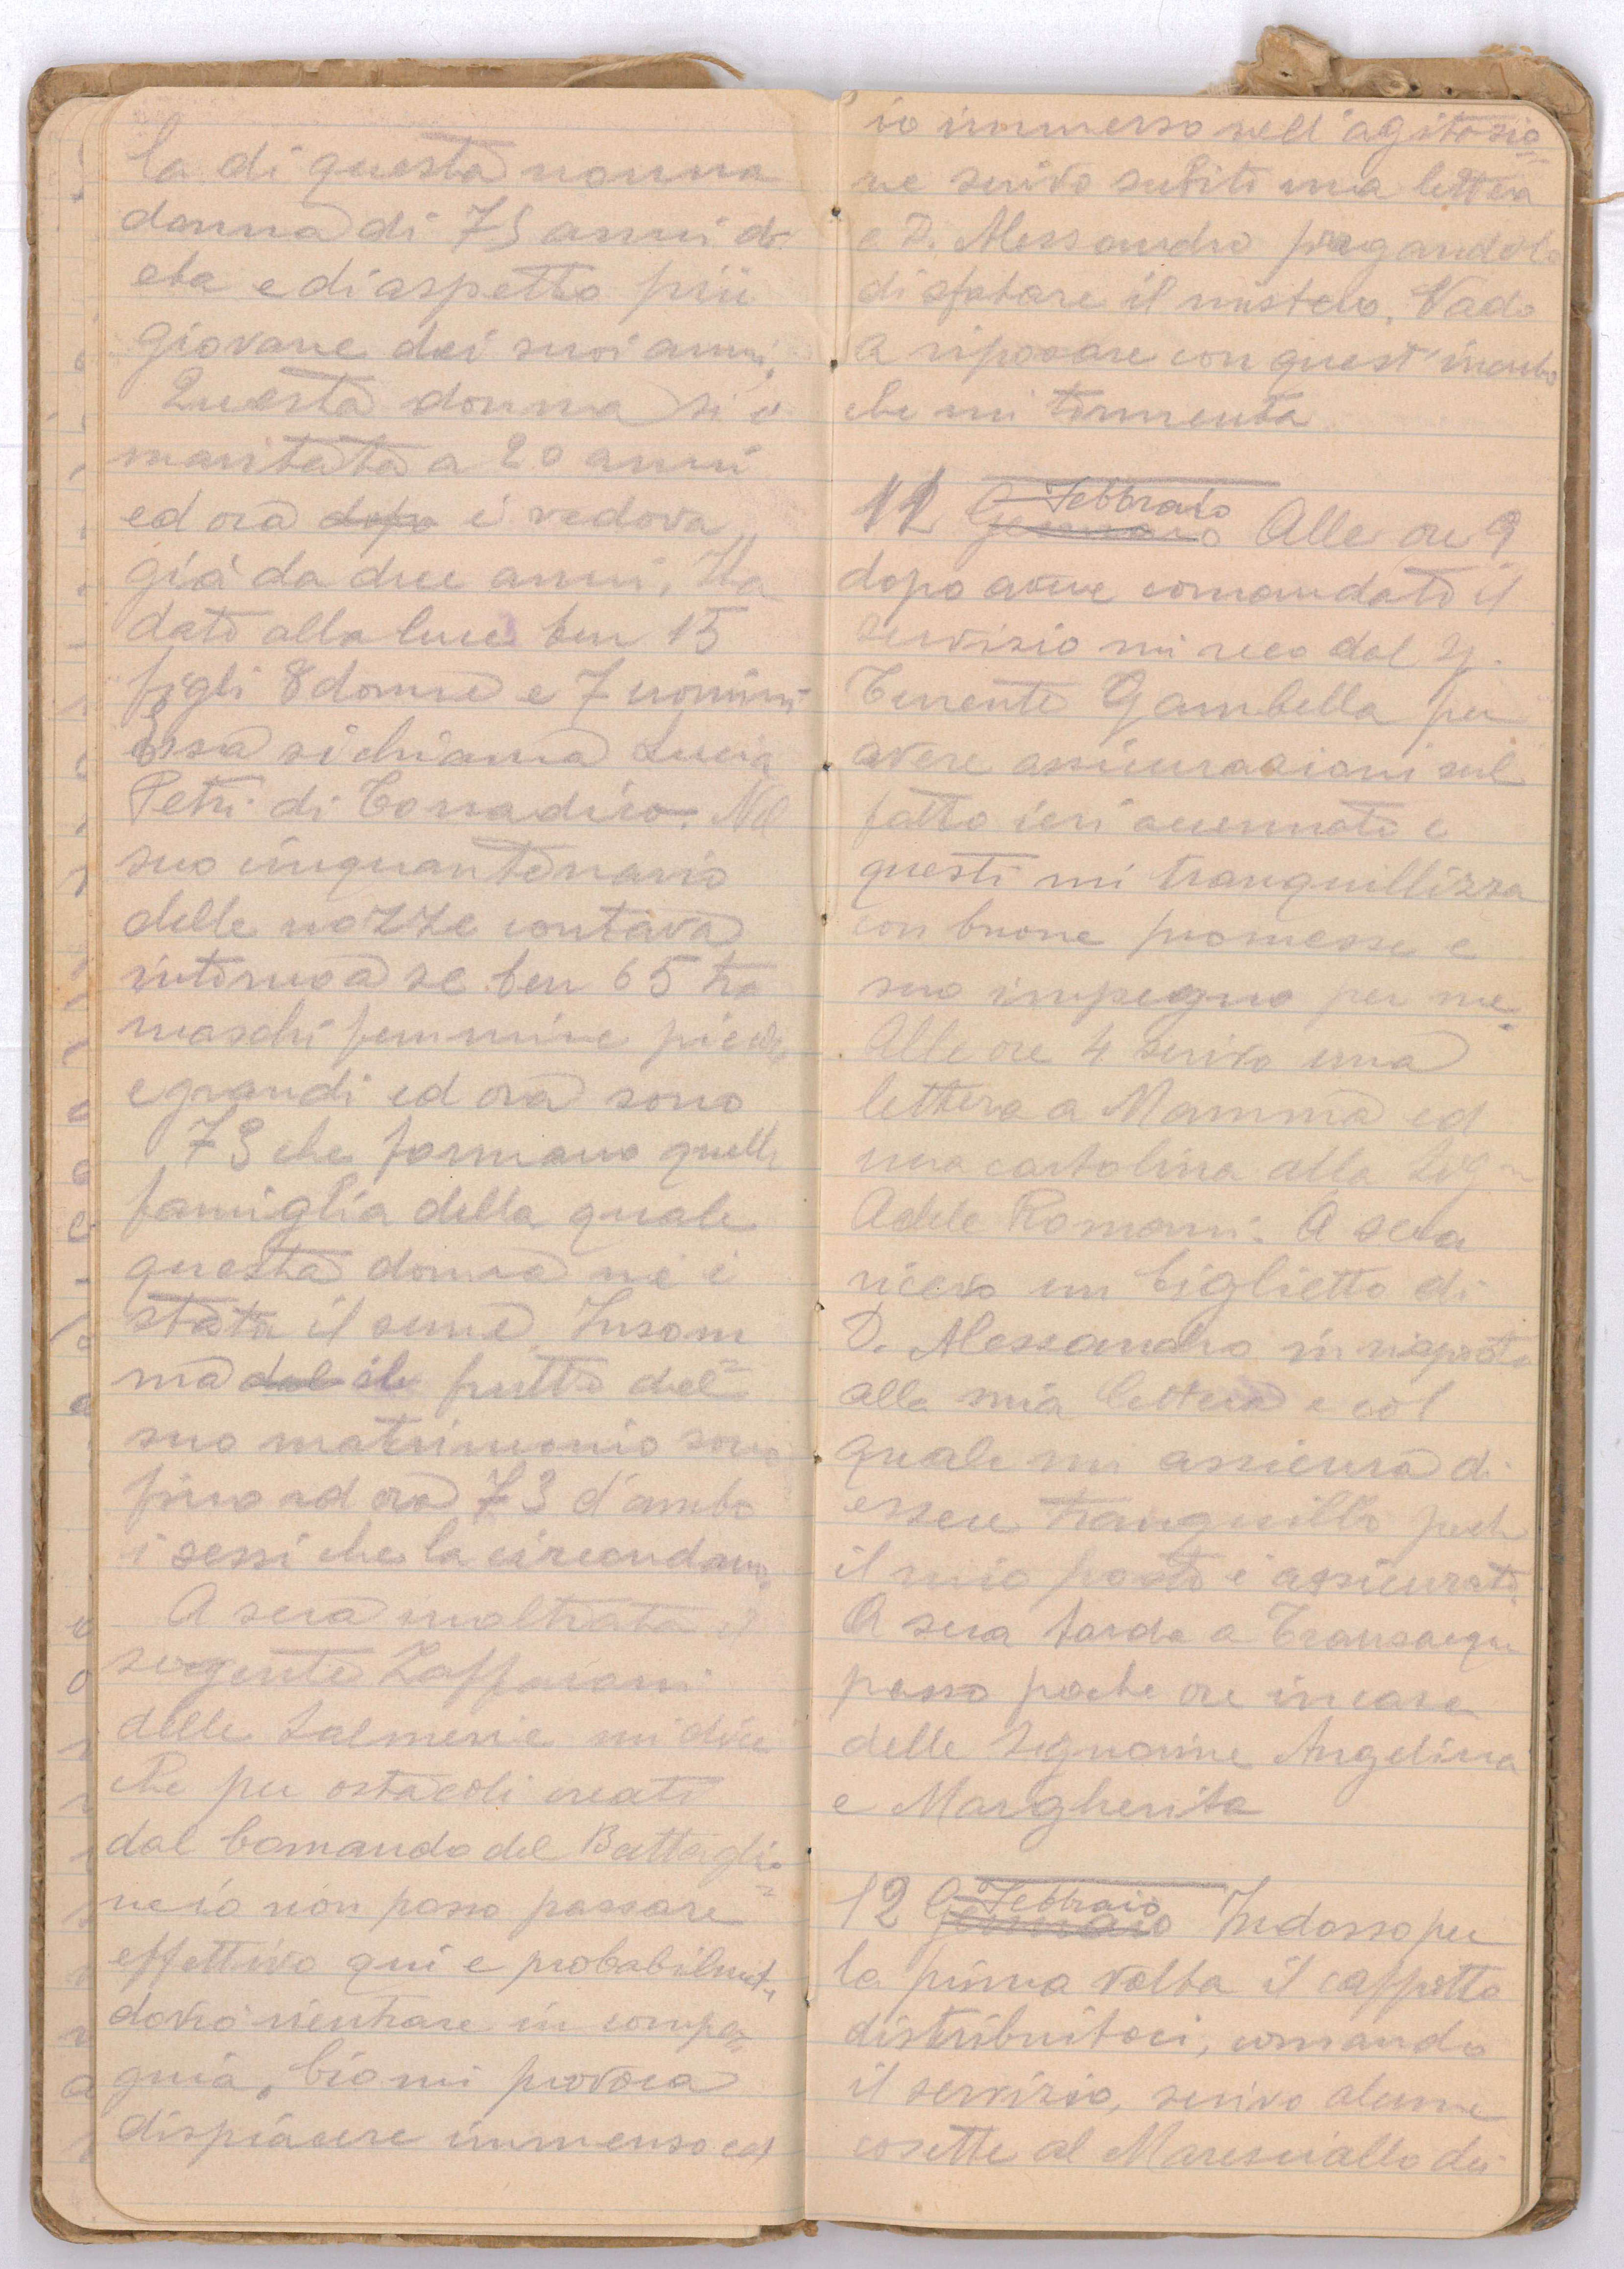 la di questa nonna
donna di 75 anni di
eta e di aspetto più
giovane dei suoi anni.
Questa donna si è
maritata a 20 anni
ed ora dopo è vedova
già da due anni. Ha
dato alla luce ben 15
figli 8 donne e 7 uomini
Essa si chiama Lucia
Petri di Nel
suo cinquantenario
delle nozze contava
intorno a se ben 65 tra
maschi femmine picole
e grandi ed ora sono
73 che formano quella
famiglia della quale
questa donna ne è
stata il seme. Insom
ma dal il frutto del=
suo matrimonio sono
fino ad ora 73 d'ambo
i sessi che la circondano.
A sera inoltrata il
sergente Zaffaiani
delle Salmerie mi dice
che per ostacoli creati
dal Comando del Battaglio=
ne io non posso passare
effettivo qui e probabilment.
dovrò rientrare in compa=
gnia. Ciò mi provoca
dispiacere immenso ed
io immerso nell'agitazio=
ne scrivo subito una lettera
a D. Alessandro pregandolo
di sfatare il mistero. Vado
a riposare con quest'incubo
che mi tormenta
11 Gennaio Febbraio Alle ore 9
dopo avere comandato il
servizio mi reco dal S.
Tenente Gambella per
avere assicurazioni sul
fatto ieri accennato e
questi mi tranquillizza
con buone promesse e
suo impegno per me.
Alle ore 4 scrivo una
lettera a Mamma ed
una cartolina alla Sig.na
Adele Romani. A sera
ricevo un biglietto di
D. Alessandro in risposta
alla mia lettera e col
quale mi assicura di
essere tranquillo perch
il mio posto è assicurato.
A sera tarda a Transacqua
passo poche ore in casa
delle Signorine Angelina
e Margherita
12 Gennaio Febbraio Indosso per
la prima volta il cappotto
distribuitoci, comando
il servizio, scrivo alcune
cosette al Maresciallo dei